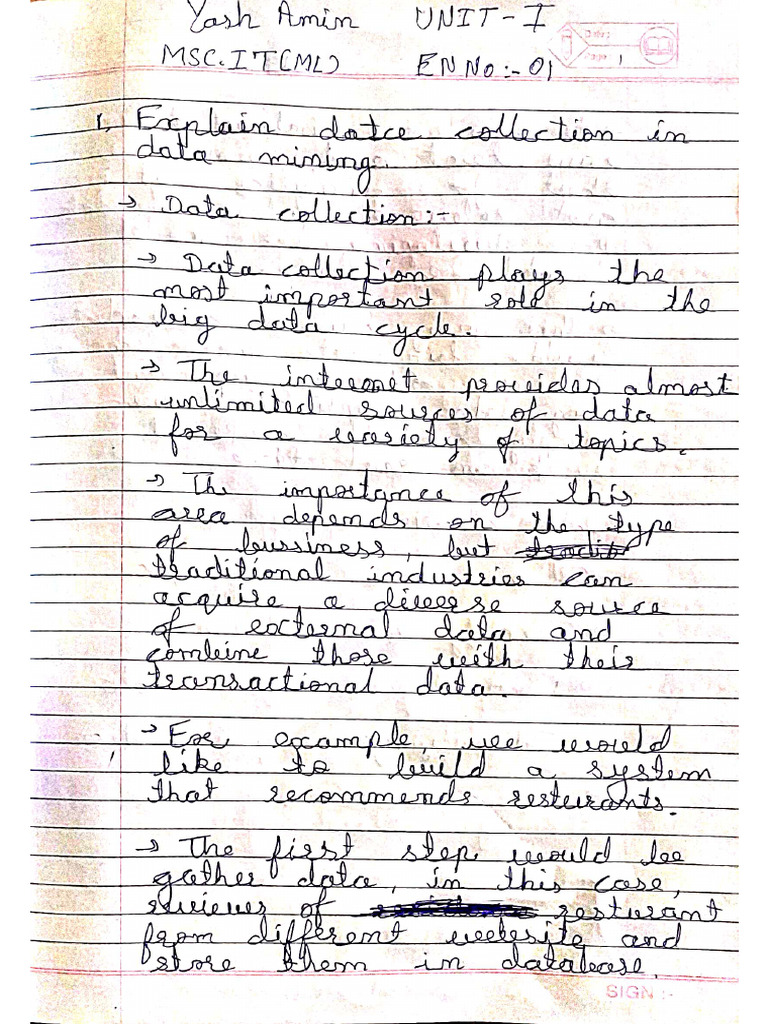 Yash Amin UNIT-I
Date:
MSC.IT(ML) EN No:-01
Page: 1
1. Explain datce collection in
data mining.
→ Data collection:-
→ Data collection plays the
most important role in the
big data cycle.
→ The internet provides almost
unlimited sources of data
for a variety of topics.
→ The importance of this
area depends on the type
of bussiness, but tradit
traditional industries can
acquire a diverse source
of external data and
combine those with their
transactional data.
→ For example, we would
like to build a system
that recommends resturants.
→ The first step would be
gather data, in this case,
reviews of resturant
from different website and
store them in database.
SIGN :-